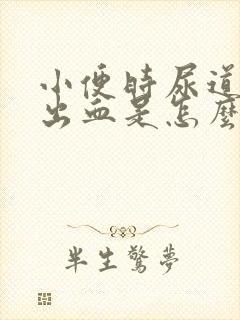 小便时尿道
出血是怎麼
半生驚夢